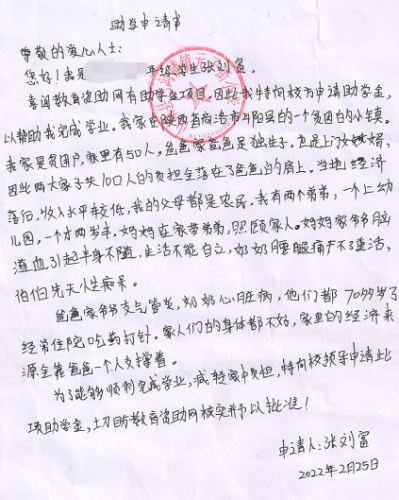 助学申请书
尊敬的爱心人士:
您好!我是 年级学生张刘富。
喜闻教育资助网有助学金项目,因此我特向校方申请助学金,
以帮助我完成学业。我家在陕西省商洛市丹阳县的一个贫困的小镇。
我家是贫困户,家里有50人,爸爸家爸爸是独生子。也是上门女婿,
因此两大家子共100人的负担全落在了爸爸的肩上。当地经济
落后,收入水平较低,我的父母都是农民。我有两个弟弟,一个上幼
儿园,一个才两岁半,妈妈在家带弟弟,照顾家人。妈妈家爷爷脑
溢血引起半身不随,生活不能自立,奶奶腰腿痛干不了重活,
伯伯先天小生痴呆。
爸爸家爷爷支气管炎,奶奶心脏病,他们都70多岁了
经常住院吃药打针。家人们的身体都不好,家里的经济来
源全靠爸爸一个人支撑着。
为了能够顺利完成学业,减轻家中负担,特向校领导申请此
项助学金,望教育资助网核实并予以批准!
申请人:张刘富
2022年2月25日